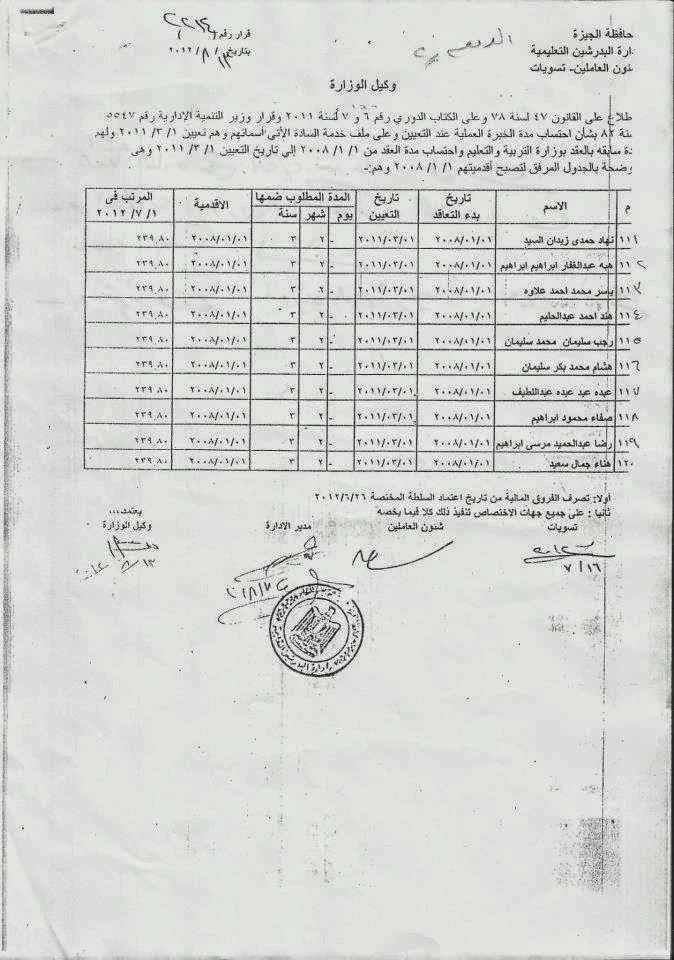 حافظة الجيزة
ارة البدرشين التعليمية
ئون العاملين- تسويات
قرار رقم (
بتاريخ ١٣/ ٨/ ٢٠١٢
وكيل الوزارة
طلاع على القانون ٤٧ لسنة ٧٨ وعلى الكتاب الدوري رقم ٦ و ٧ لسنة ٢٠١١ وقرار وزير التنمية الإدارية رقم ٥٥٤٧
نة ٨٢ بشأن احتساب مدة الخبرة العملية عند التعيين وعلى ملف خدمة السادة الأتى أسمائهم وهم تعيين ١/ ٣/ ٢٠١١ ولهم
ة سابقه بالعقد بوزارة التربية والتعليم واحتساب مدة العقد من ١/ ١/ ٢٠٠٨ إلي تاريخ التعيين ١/ ٣/ ٢٠١١ وهى
وضحة بالجدول المرفق لتصبح أقدميتهم ١/ ١/ ٢٠٠٨ وهم:-
م الاسم تاريخ بدء التعاقد تاريخ التعيين المدة المطلوب ضمها يوم شهر سنة الاقدمية المرتب فى ١/ ٧/ ٢٠١٢
١١١ نهاد حمدى زيدان السيد ٢٠٠٨/٠١/٠١ ٢٠١١/٠٣/٠١ - ٢ ٣ ٢٠٠٨/٠١/٠١ ٢٣٩,٨٠
١١٢ هبه عبدالغفار ابراهيم ابراهيم ٢٠٠٨/٠١/٠١ ٢٠١١/٠٣/٠١ - ٢ ٣ ٢٠٠٨/٠١/٠١ ٢٣٩,٨٠
١١٣ ياسر محمد احمد علاوه ٢٠٠٨/٠١/٠١ ٢٠١١/٠٣/٠١ - ٢ ٣ ٢٠٠٨/٠١/٠١ ٢٣٩,٨٠
١١٤ هند احمد عبدالحليم ٢٠٠٨/٠١/٠١ ٢٠١١/٠٣/٠١ - ٢ ٣ ٢٠٠٨/٠١/٠١ ٢٣٩,٨٠
١١٥ رجب سليمان محمد سليمان ٢٠٠٨/٠١/٠١ ٢٠١١/٠٣/٠١ - ٢ ٣ ٢٠٠٨/٠١/٠١ ٢٣٩,٨٠
١١٦ هشام محمد بكر سليمان ٢٠٠٨/٠١/٠١ ٢٠١١/٠٣/٠١ - ٢ ٣ ٢٠٠٨/٠١/٠١ ٢٣٩,٨٠
١١٧ عبده عيد عبده عبداللطيف ٢٠٠٨/٠١/٠١ ٢٠١١/٠٣/٠١ - ٢ ٣ ٢٠٠٨/٠١/٠١ ٢٣٩,٨٠
١١٨ صفاء محمود ابراهيم ٢٠٠٨/٠١/٠١ ٢٠١١/٠٣/٠١ - ٢ ٣ ٢٠٠٨/٠١/٠١ ٢٣٩,٨٠
١١٩ رضا عبدالحميد مرسى ابراهيم ٢٠٠٨/٠١/٠١ ٢٠١١/٠٣/٠١ - ٢ ٣ ٢٠٠٨/٠١/٠١ ٢٣٩,٨٠
١٢٠ هناء جمال سعيد ٢٠٠٨/٠١/٠١ ٢٠١١/٠٣/٠١ - ٢ ٣ ٢٠٠٨/٠١/٠١ ٢٣٩,٨٠
أولا: تصرف الفروق المالية من تاريخ اعتماد السلطة المختصة ٢٠١٢/٦/٢٦
ثانيا : على جميع جهات الاختصاص تنفيذ ذلك كلا فيما يخصه
تسويات شئون العاملين مدير الادارة
يعتمد،،،
وكيل الوزارة
٧/١٦
٨/١٣